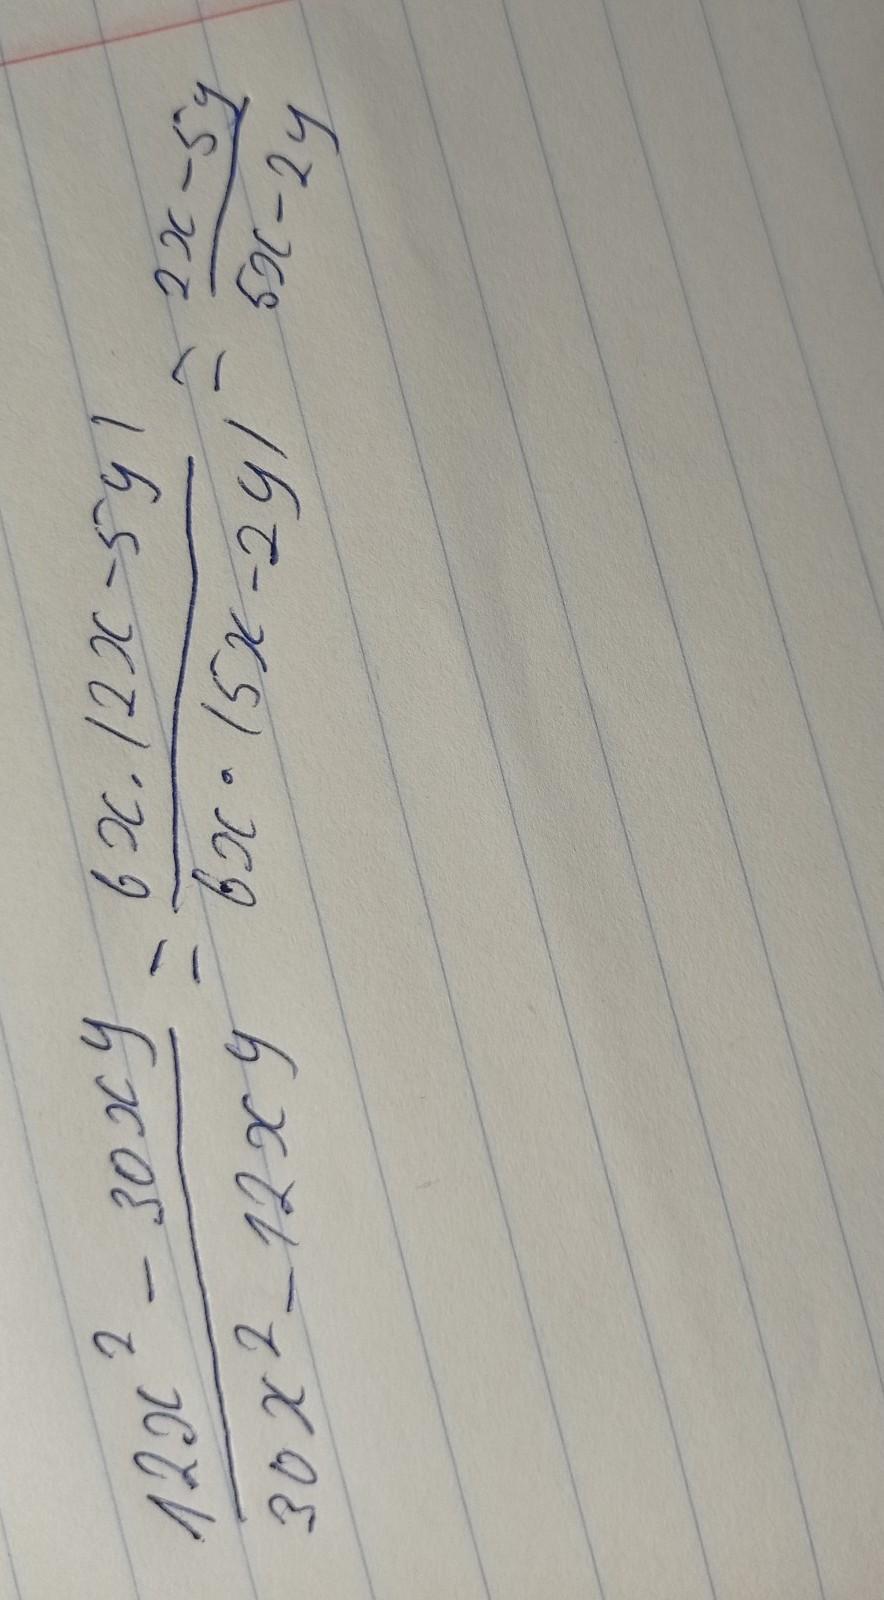 12x² - 30xy / 30x² - 12xy = 6x · (2x - 5y) / 6x · (5x - 2y) = 2x - 5y / 5x - 2y